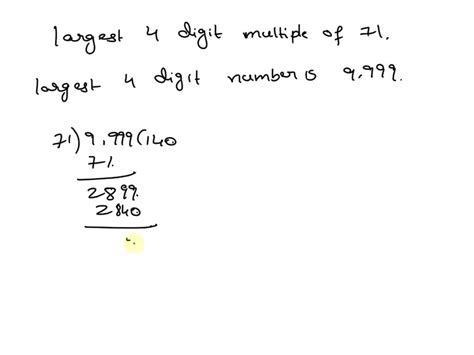 largest 4 digit multiple of 71.
largest 4 digit number is 9,999.
71) 9,999(140
71
2899
2840